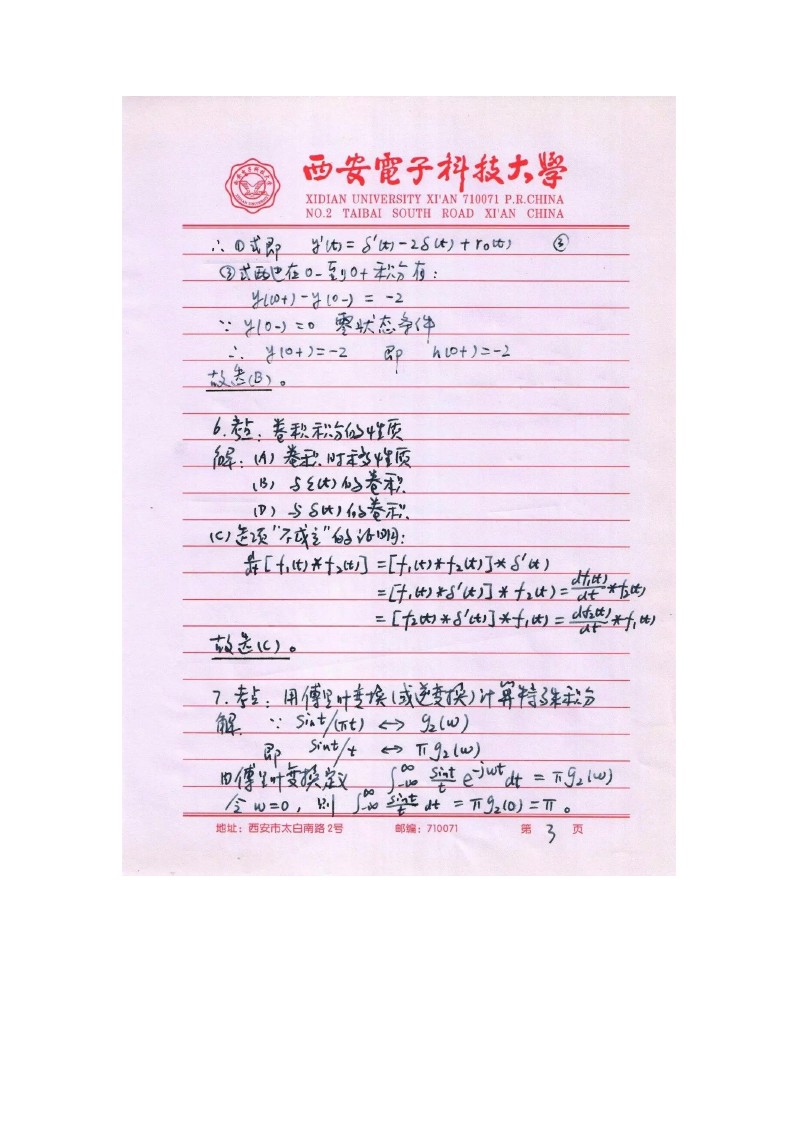 西安電子科技大學
XIDIAN UNIVERSITY XI'AN 710071 P.R.CHINA
NO.2 TAIBAI SOUTH ROAD XI'AN CHINA
∴ ①式即 y'(t) = δ'(t) - 2δ(t) + r₀(t) ③
③式两边在0-到0+积分有:
y(0+) - y(0-) = -2
∵ y(0-) = 0 零状态条件
∴ y(0+) = -2 即 h(0+) = -2
故选(B)。
6. 考点: 卷积积分的性质
解: (A) 卷积时移性质
(B) 与ε(t)的卷积
(D) 与δ(t)的卷积
(C) 选项"不成立"的证明:
d/dt[f₁(t)*f₂(t)] = [f₁(t)*f₂(t)]*δ'(t)
= [f₁(t)*δ'(t)]*f₂(t) = df₁(t)/dt * f₂(t)
= [f₂(t)*δ'(t)]*f₁(t) = df₂(t)/dt * f₁(t)
故选(C)。
7. 考点: 用傅里叶变换(或逆变换)计算特殊积分
解: ∵ sint/(πt) ↔ g₂(ω)
即 sint/t ↔ πg₂(ω)
由傅里叶变换定义 ∫_{-∞}^{∞} sint/t e^{-jωt} dt = πg₂(ω)
令ω=0, 则 ∫_{-∞}^{∞} sint/t dt = πg₂(0) = π。
地址: 西安市太白南路2号 邮编: 710071 第 3 页